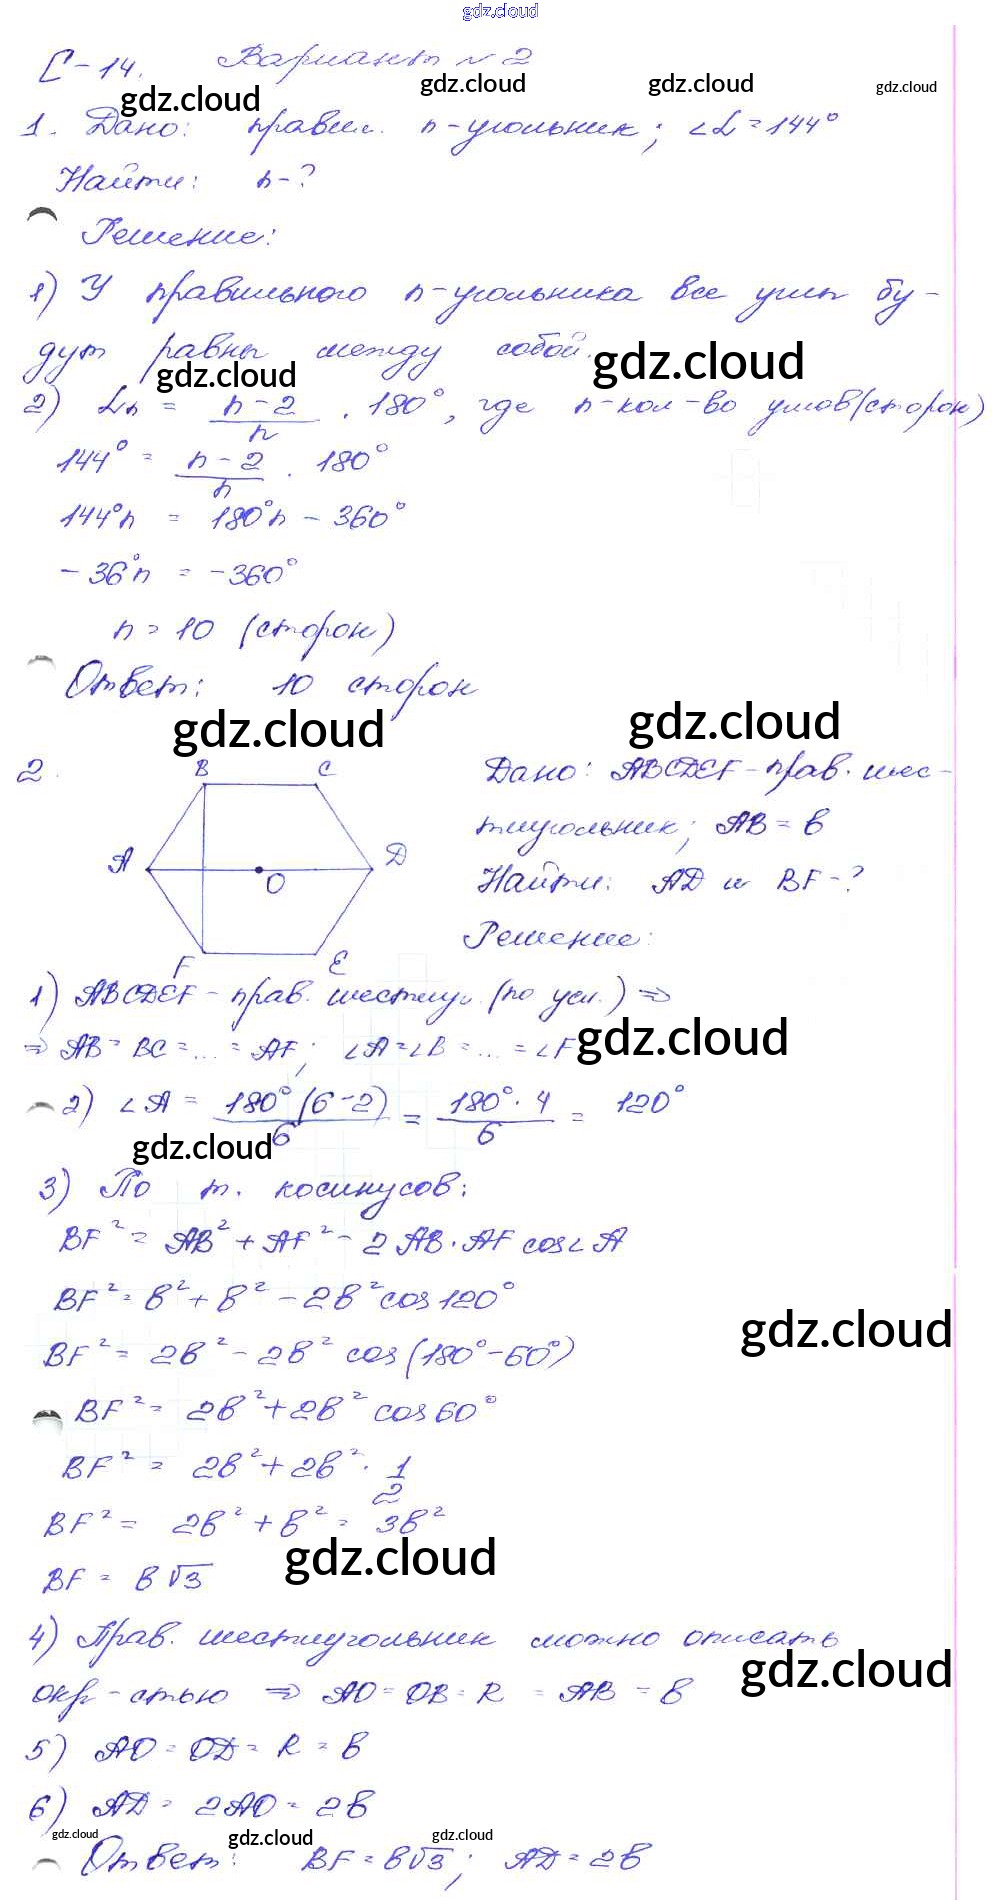 gdz.cloud
С-14. Вариант №2
gdz.cloud gdz.cloud gdz.cloud gdz.cloud
1. Дано: правил. n-угольник; ∠α=144°
Найти: n-?
Решение:
1) У правильного n-угольника все углы бу-
дут равны между собой.
gdz.cloud gdz.cloud
2) αn = (n-2)/n · 180°, где n-кол-во углов(сторон)
144° = (n-2)/n · 180°
144°n = 180°n - 360°
-36°n = -360°
n = 10 (сторон)
Ответ: 10 сторон
gdz.cloud gdz.cloud
2.
B C
A O D
F E
Дано: ABCDEF - прав. шес-
тиугольник; AB = в
Найти: AD и BF-?
Решение:
1) ABCDEF - прав. шестиуг. (по усл.) ⇒
⇒ AB = BC = ... = AF; ∠A = ∠B = ... = ∠F
gdz.cloud
2) ∠A = 180°(6-2)/6 = 180°·4/6 = 120°
gdz.cloud
3) По т. косинусов:
BF² = AB² + AF² - 2AB·AF cos∠A
BF² = в² + в² - 2в² cos120°
gdz.cloud
BF² = 2в² - 2в² cos(180°-60°)
BF² = 2в² + 2в² cos60°
BF² = 2в² + 2в² · 1/2
BF² = 2в² + в² = 3в²
gdz.cloud
BF = в√3
4) Прав. шестиугольник можно описать
gdz.cloud
окр-стью ⇒ AO = OB = R = AB = в
5) AO = OD = R = в
6) AD = 2AO = 2в
gdz.cloud gdz.cloud gdz.cloud
Ответ: BF = в√3; AD = 2в